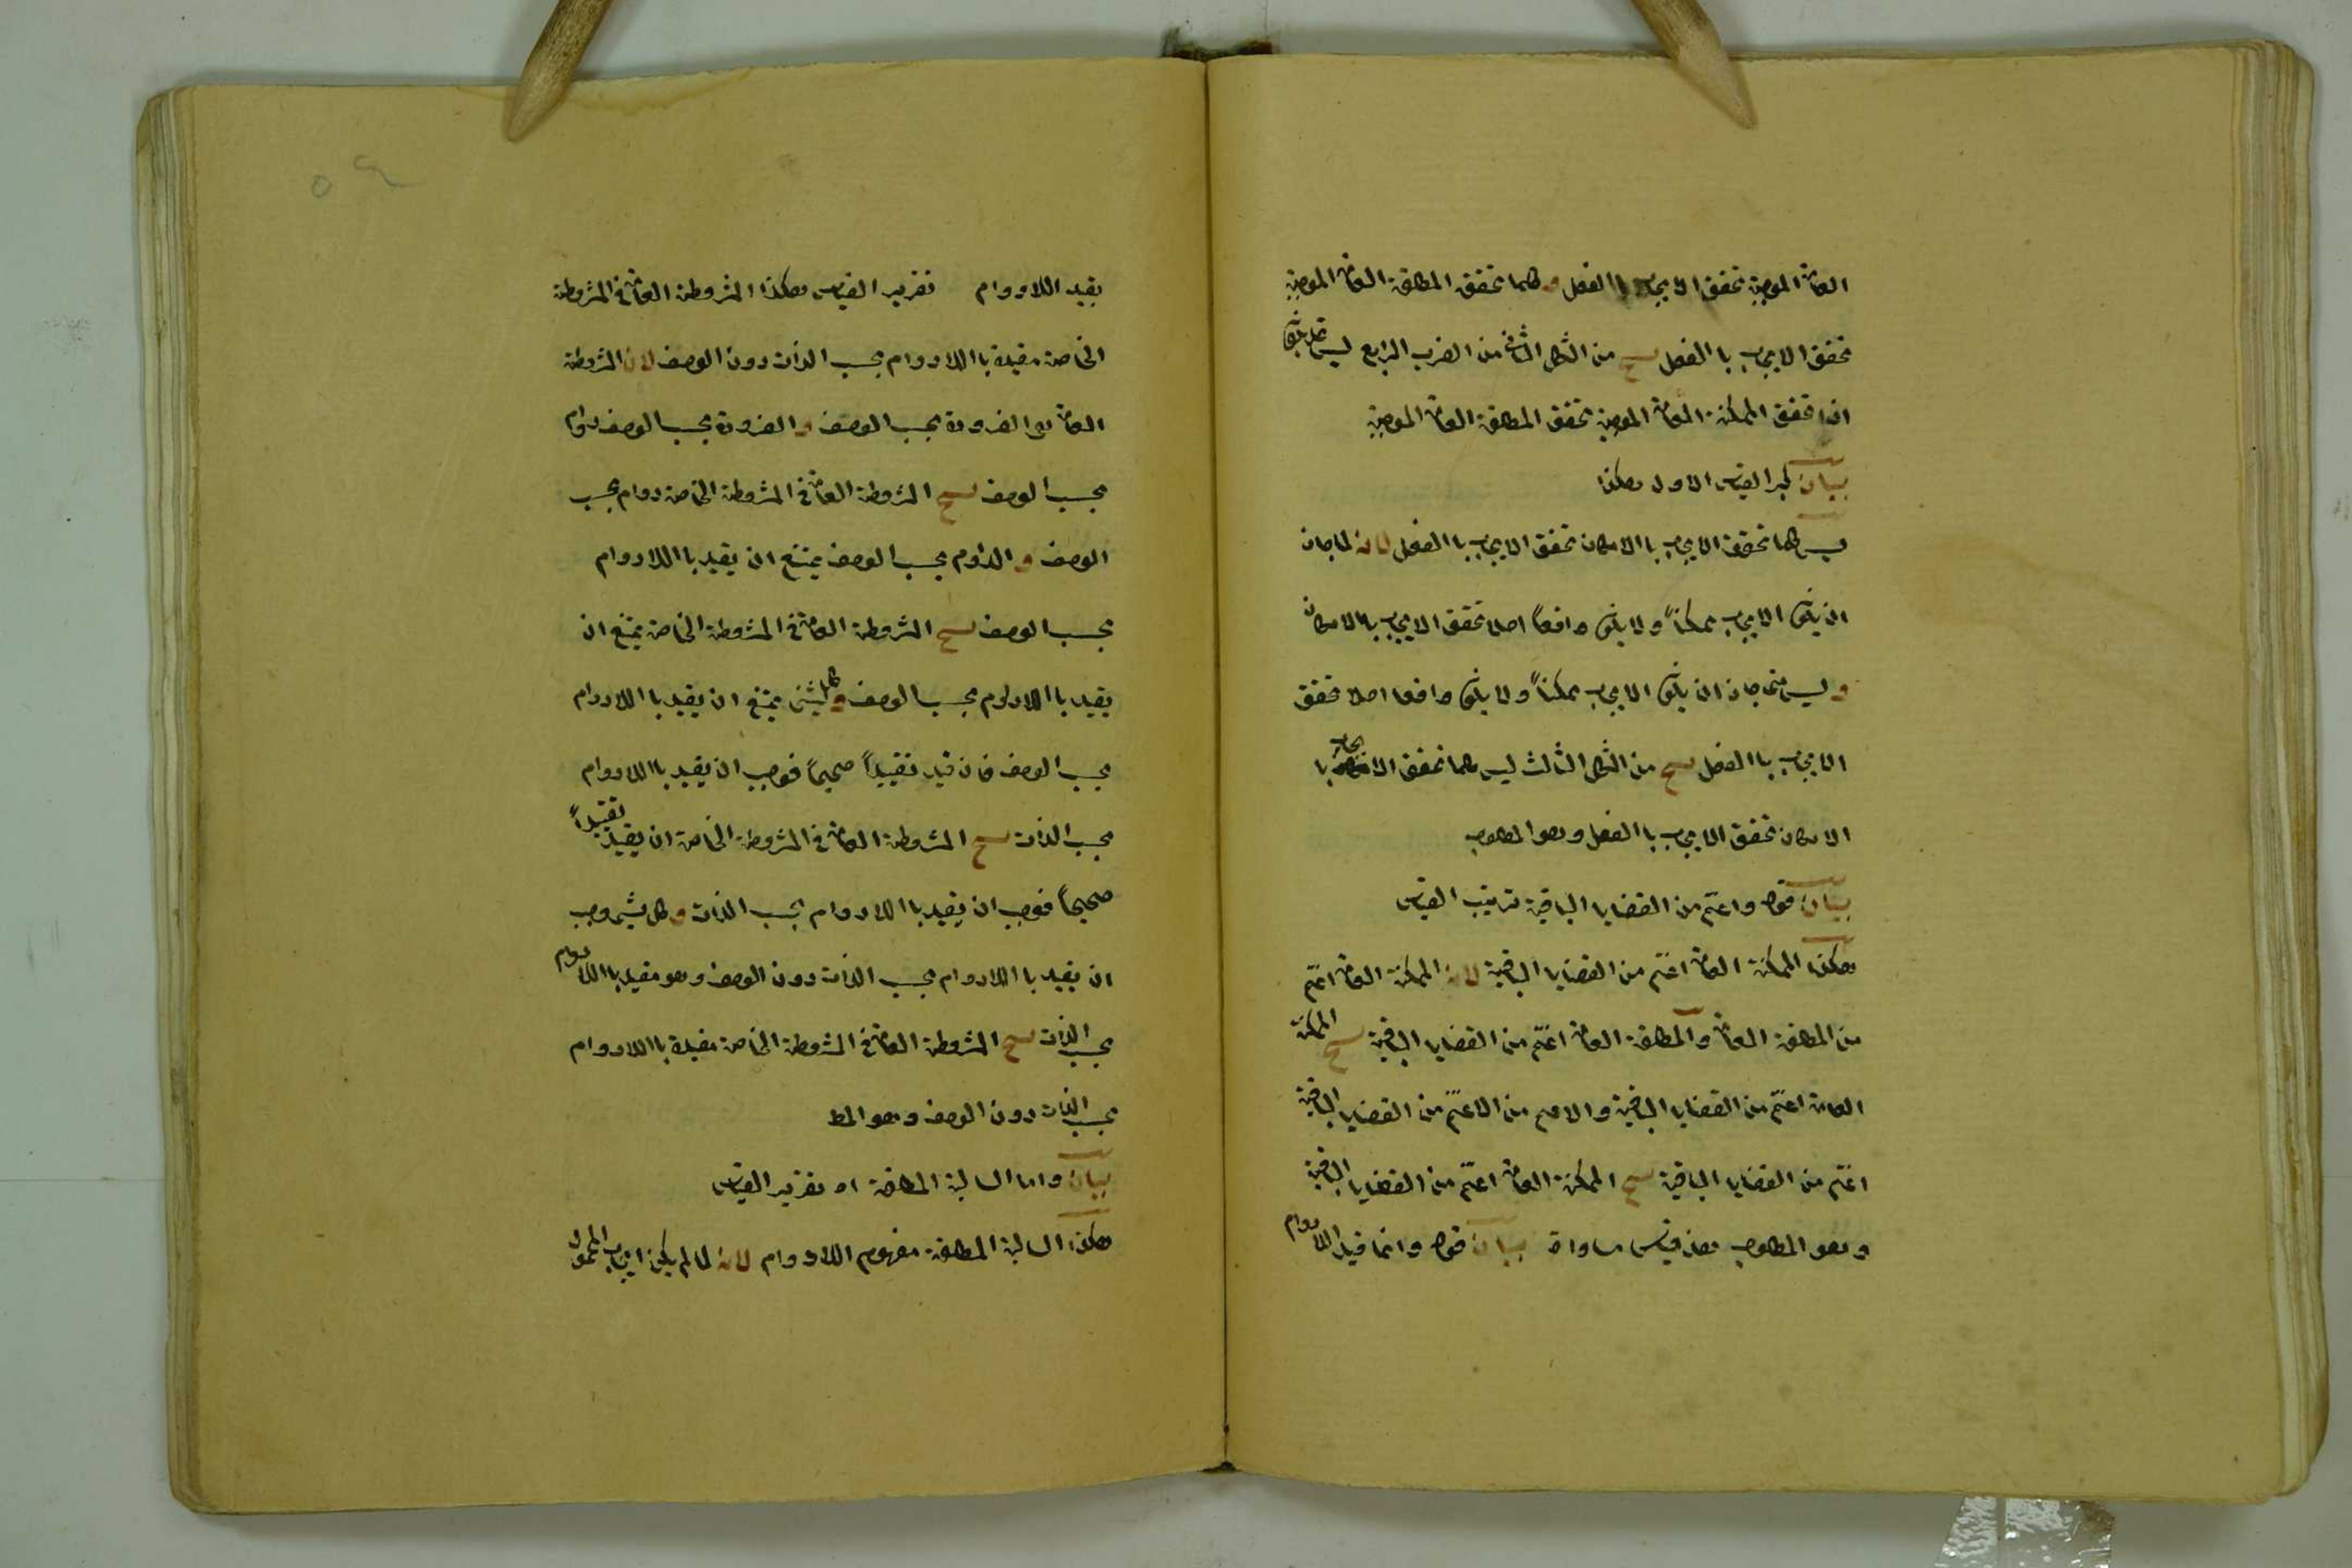 العامة الموجبة تحقق الايجاب با الفعل و كلما تحقق المطلقة العامة الموجبة
تحقق الايجاب با الفعل ينتج من الشكل الثاني من الضرب الرابع ليس قد يكون
اذا تحقق الممكنة العامة الموجبة تحقق المطلقة العامة الموجبة
بيان كبر القياس الاول هكذا
ليس كلما تحقق الايجاب با الامكان تحقق الايجاب با الفعل لانه لما جاز
ان يكون الايجاب ممكناً ولا يكون واقعاً اصلا تحقق الايجاب با الامكان
و ليس متى جاز ان يكون الايجاب ممكناً ولا يكون واقعا اصلا تحقق
الايجاب با الفعل ينتج من الشكل الثالث ليس كلما تحقق الايجاب با
الامكان تحقق الايجاب با الفعل وهو المطلوب
بيان قوله واعم من القضايا الباقية ترتيب القياس
هكذا الممكنة العامة اعم من القضايا الباقية لانه الممكنة العامة اعم
من المطلقة العامة والمطلقة العامة اعم من القضايا الباقية ينتج الممكنة
العامة اعم من القضايا الباقية والاعم من الاعم من القضايا الباقية
اعم من القضايا الباقية ينتج الممكنة العامة اعم من القضايا الباقية
وهو المطلوب هذا قياس مساواة بيان قوله وانما قيد اللادوام
بقيد اللادوام تقرير القياس هكذا المشروطة العامة في المشروطة
الخاصة مقيدة با اللادوام بحسب الذات دون الوصف لان المشروطة
العامة هي الضرورة بحسب الوصف و الضرورة بحسب الوصف دوام
بحسب الوصف ينتج المشروطة العامة في المشروطة الخاصة دوام بحسب
الوصف و الدوام بحسب الوصف يمتنع ان يقيد با اللادوام
بحسب الوصف ينتج المشروطة العامة في المشروطة الخاصة يمتنع ان
يقيد با اللادوام بحسب الوصف و كل شئ يمتنع ان يقيد با اللادوام
بحسب الوصف فان قيد تقييداً صحيحاً فوجب ان يقيد با اللادوام
بحسب الذات ينتج المشروطة العامة في المشروطة الخاصة ان يقيد تقييداً
صحيحاً فوجب ان يقيد با اللادوام بحسب الذات و كل شئ وجب
ان يقيد با اللادوام بحسب الذات دون الوصف وهو مقيد با اللادوام
بحسب الذات ينتج المشروطة العامة في المشروطة الخاصة مقيدة با اللادوام
بحسب الذات دون الوصف وهو المط
بيان واما السالبة المطلقة اه تقرير القياس
هكذا السالبة المطلقة مفهوم اللادوام لانه لما لم يكن ايجاب المحمول